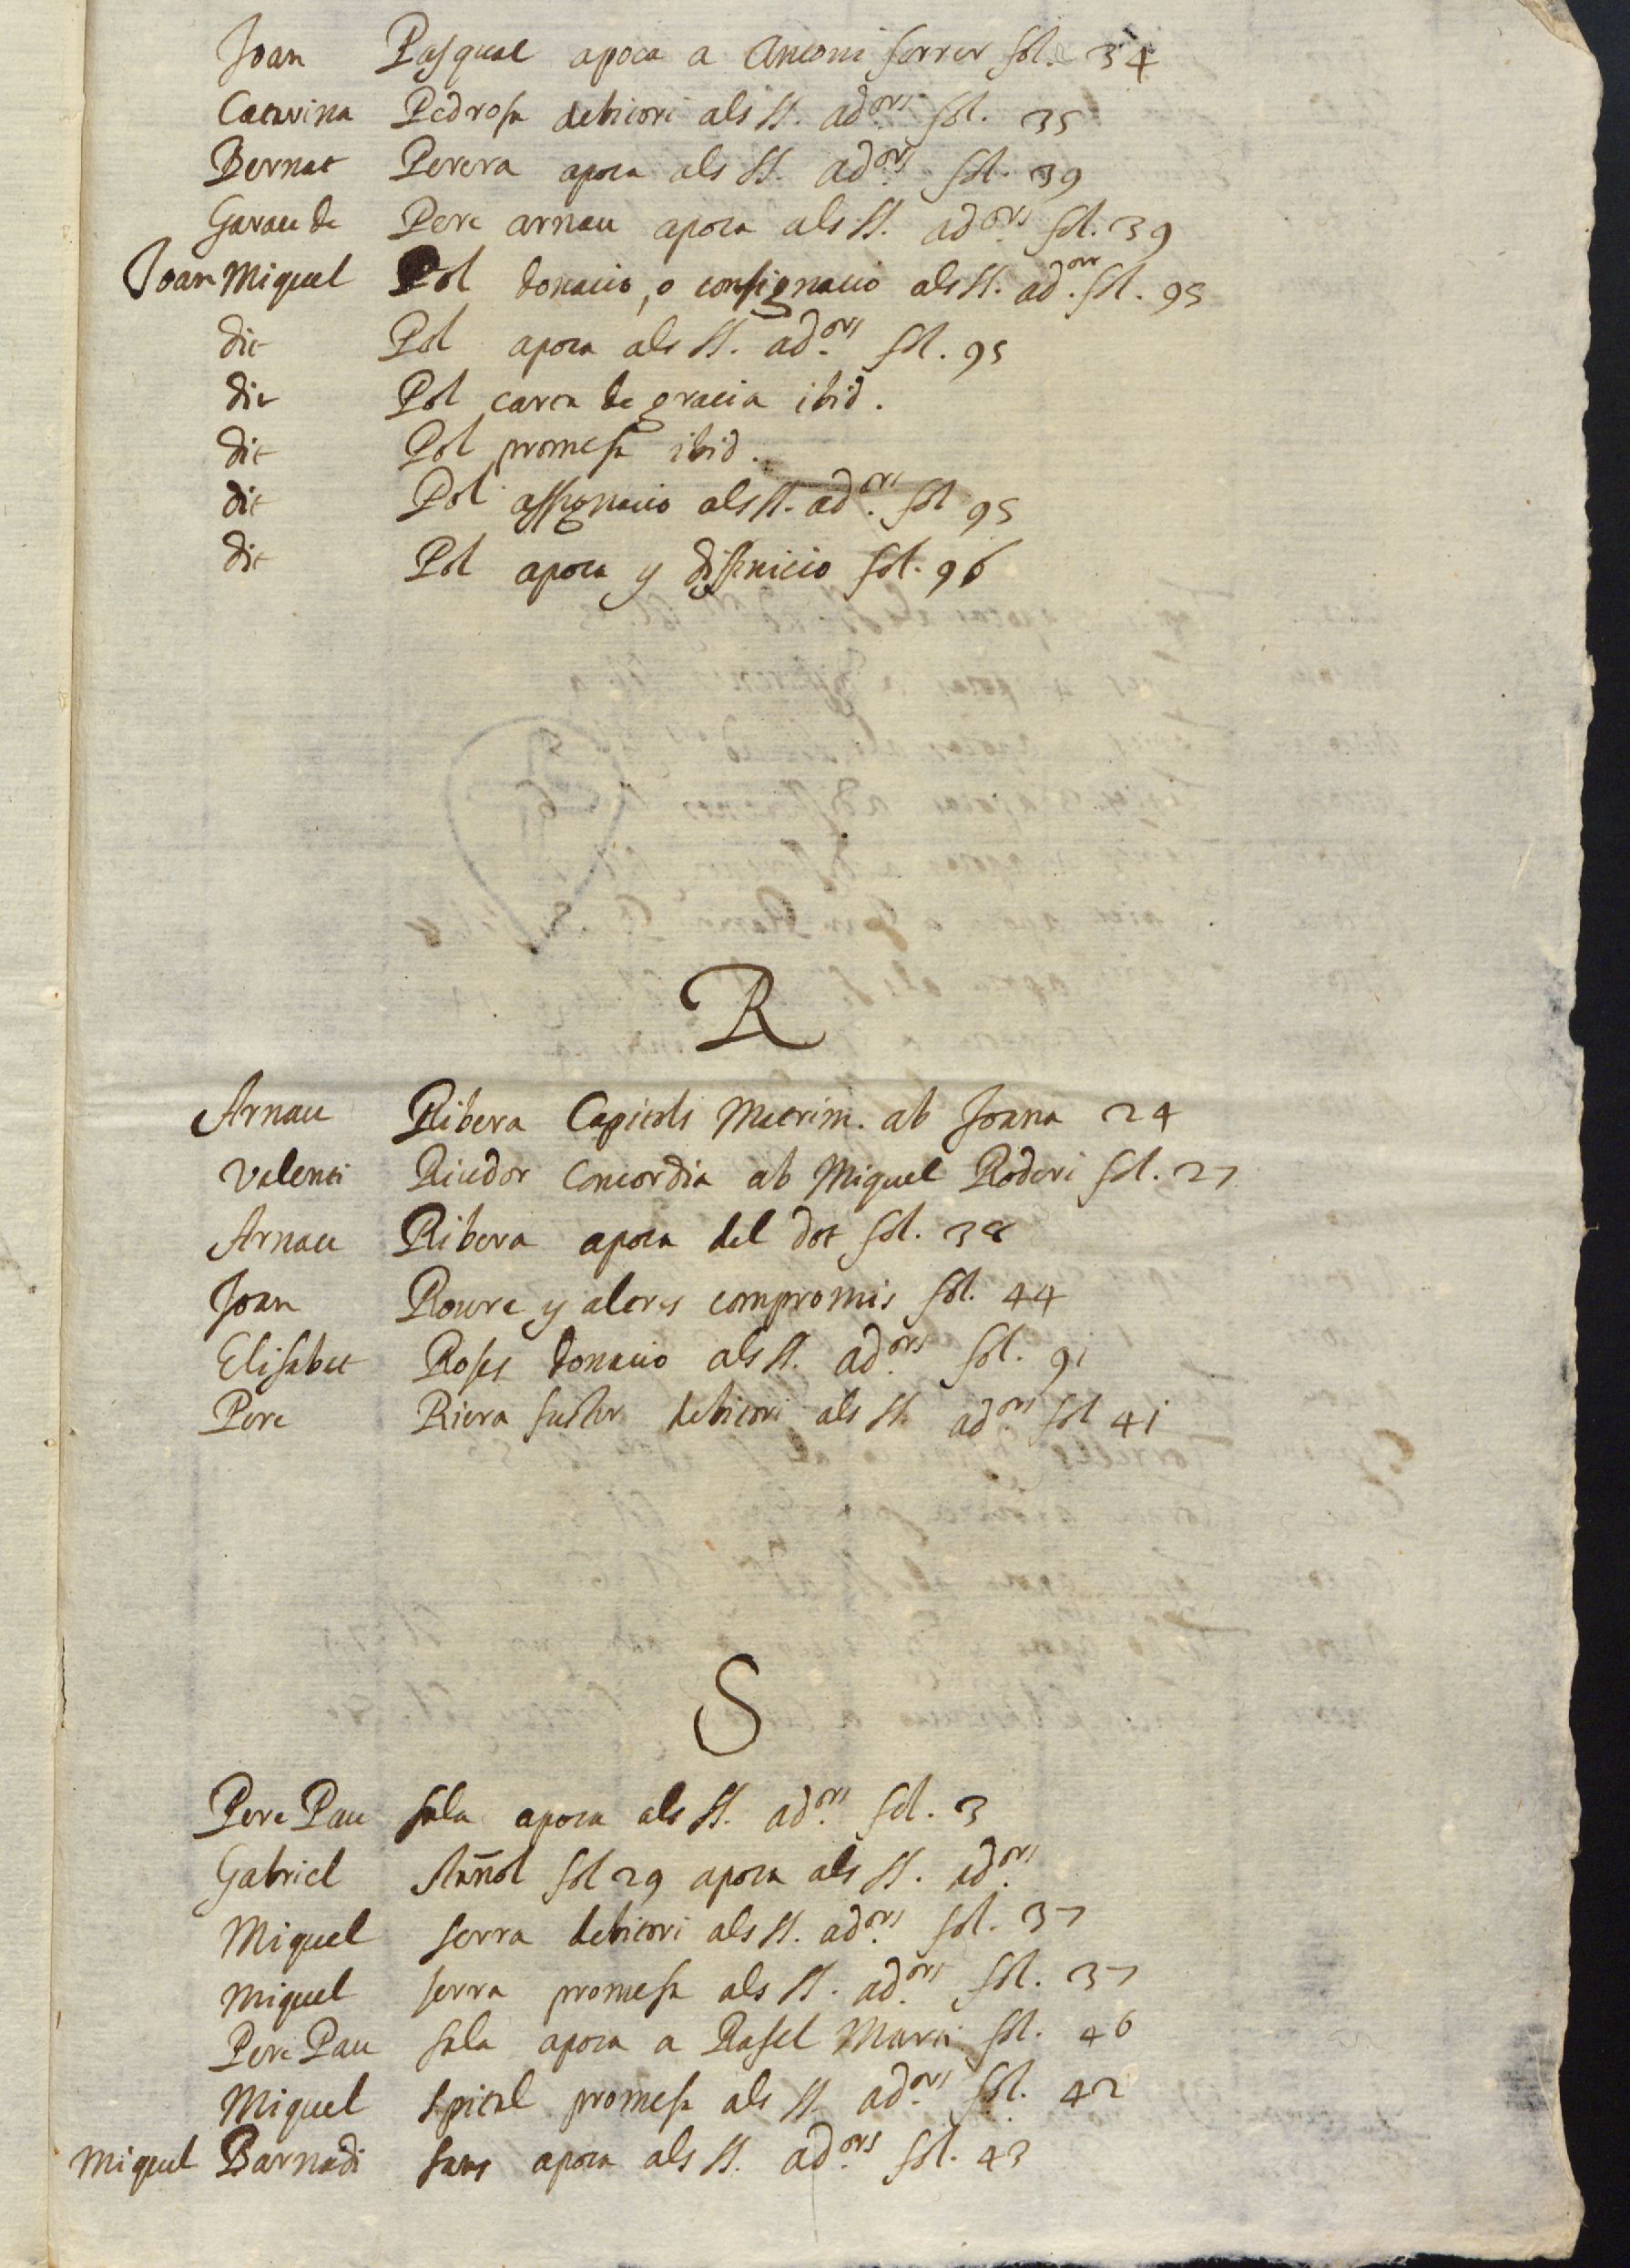 Joan Pasqual apoca a Antoni ferrer fol. 34
Catarina Pedrosa debitori als SS. ad.ors fol. 35
Bernat Perera apoca als SS. ad.ors fol. 39
Garau de Pere arnau apoca als SS. ad.ors fol. 39
Joan Miquel Pol donacio, o consignacio als SS. ad.ors fol. 95
dit Pol apoca als SS. ad.ors fol. 95
dit Pol carta de gracia ibid.
dit Pol promesa ibid.
dit Pol assignacio als SS. ad.ors fol 95
dit Pol apoca y diffinicio fol. 96
R
Arnau Ribera Capitols Matrim. ab Joana 24
Valenti Riudor Concordia ab Miquel Roderi fol. 27
Arnau Ribera apoca del dot fol. 38
Joan Roure y altres compromis fol. 44
Elisabet Roses donacio als SS. ad.ors fol. 91
Pere Riera fuster debitori als SS. ad.ors fol 41
S
Pere Pau sala apoca als SS. ad.ors fol. 3
Gabriel fol 29 apoca als SS. ad.ors
Miquel serra debitori als SS. ad.ors fol. 37
Miquel serra promesa als SS. ad.ors fol. 37
Pere Pau sala apoca a Rafel Marti fol. 46
Miquel spital promesa als SS. ad.ors fol. 42
Miquel Barnadi sans apoca als SS. ad.ors fol. 43